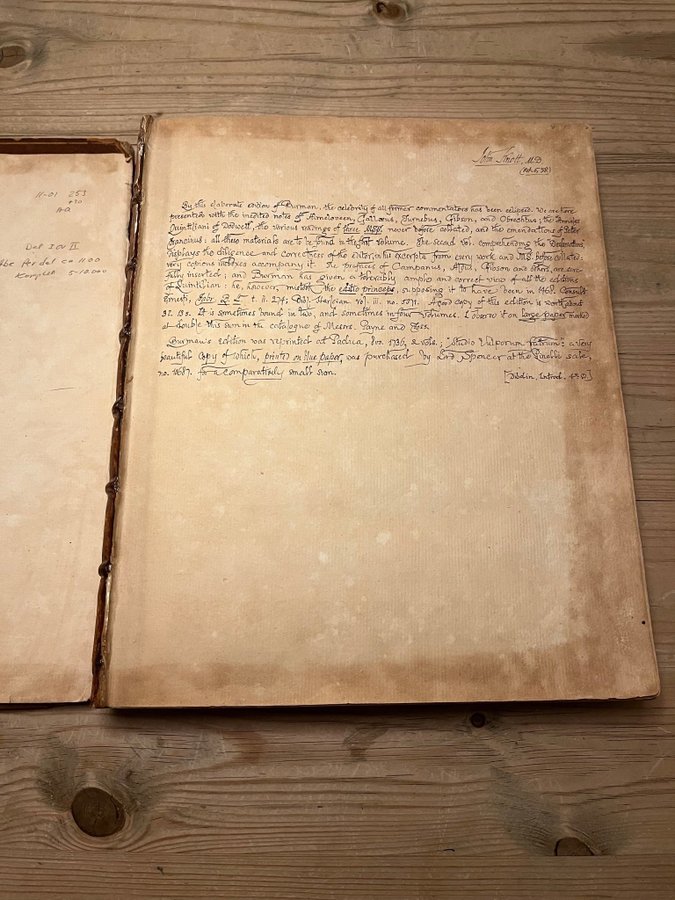 11-01 253
Del I OV II
Abc per del ca 1100
Komplett 5-10.000
John Knott, M.D.
By this elaborate edition of Burman, the celebrity of all former commentators has been eclipsed. We are here
presented with the inedited notes of Almeloveen, Galloeus, Turnebus, Gibson, and Obrechtus; the Annales
Quintiliani of Dodwell, the various readings of three MSS. never before collated, and the emendations of Peter
Francius: all these materials are to be found in the first volume. The second vol. comprehending the "Declamations,"
displays the diligence and correctness of the editor, in his excerpts from every work and MS. before collated:
very copious indexes accompany it. The prefaces of Campanus, Aldus, Gibson and others, are care-
fully inserted; and Burman has given a tolerably ample and correct view of all the editions
of Quintilian: he, however, mistook the editio princeps, supposing it to have been in 1468. Consult
Ernesti, t. ii. 274; Bibl. Harleian. vol. iii. no. 5071. A good copy of this edition is worth about
3l. 13s. It is sometimes bound in two, and sometimes in four volumes. I observe it on large paper marked
at double this sum in the catalogue of Messrs. Payne and Foss.
Burman's edition was reprinted at Padua, 8vo. 1736, 2 vols.; "Studio Vulporum fratrum": a very
beautiful copy of which, printed on blue paper, was purchased by Lord Spencer at the Pinelli sale,
no. 11687. for a comparatively small sum.
[Dibdin, Introd. 4th Ed.]